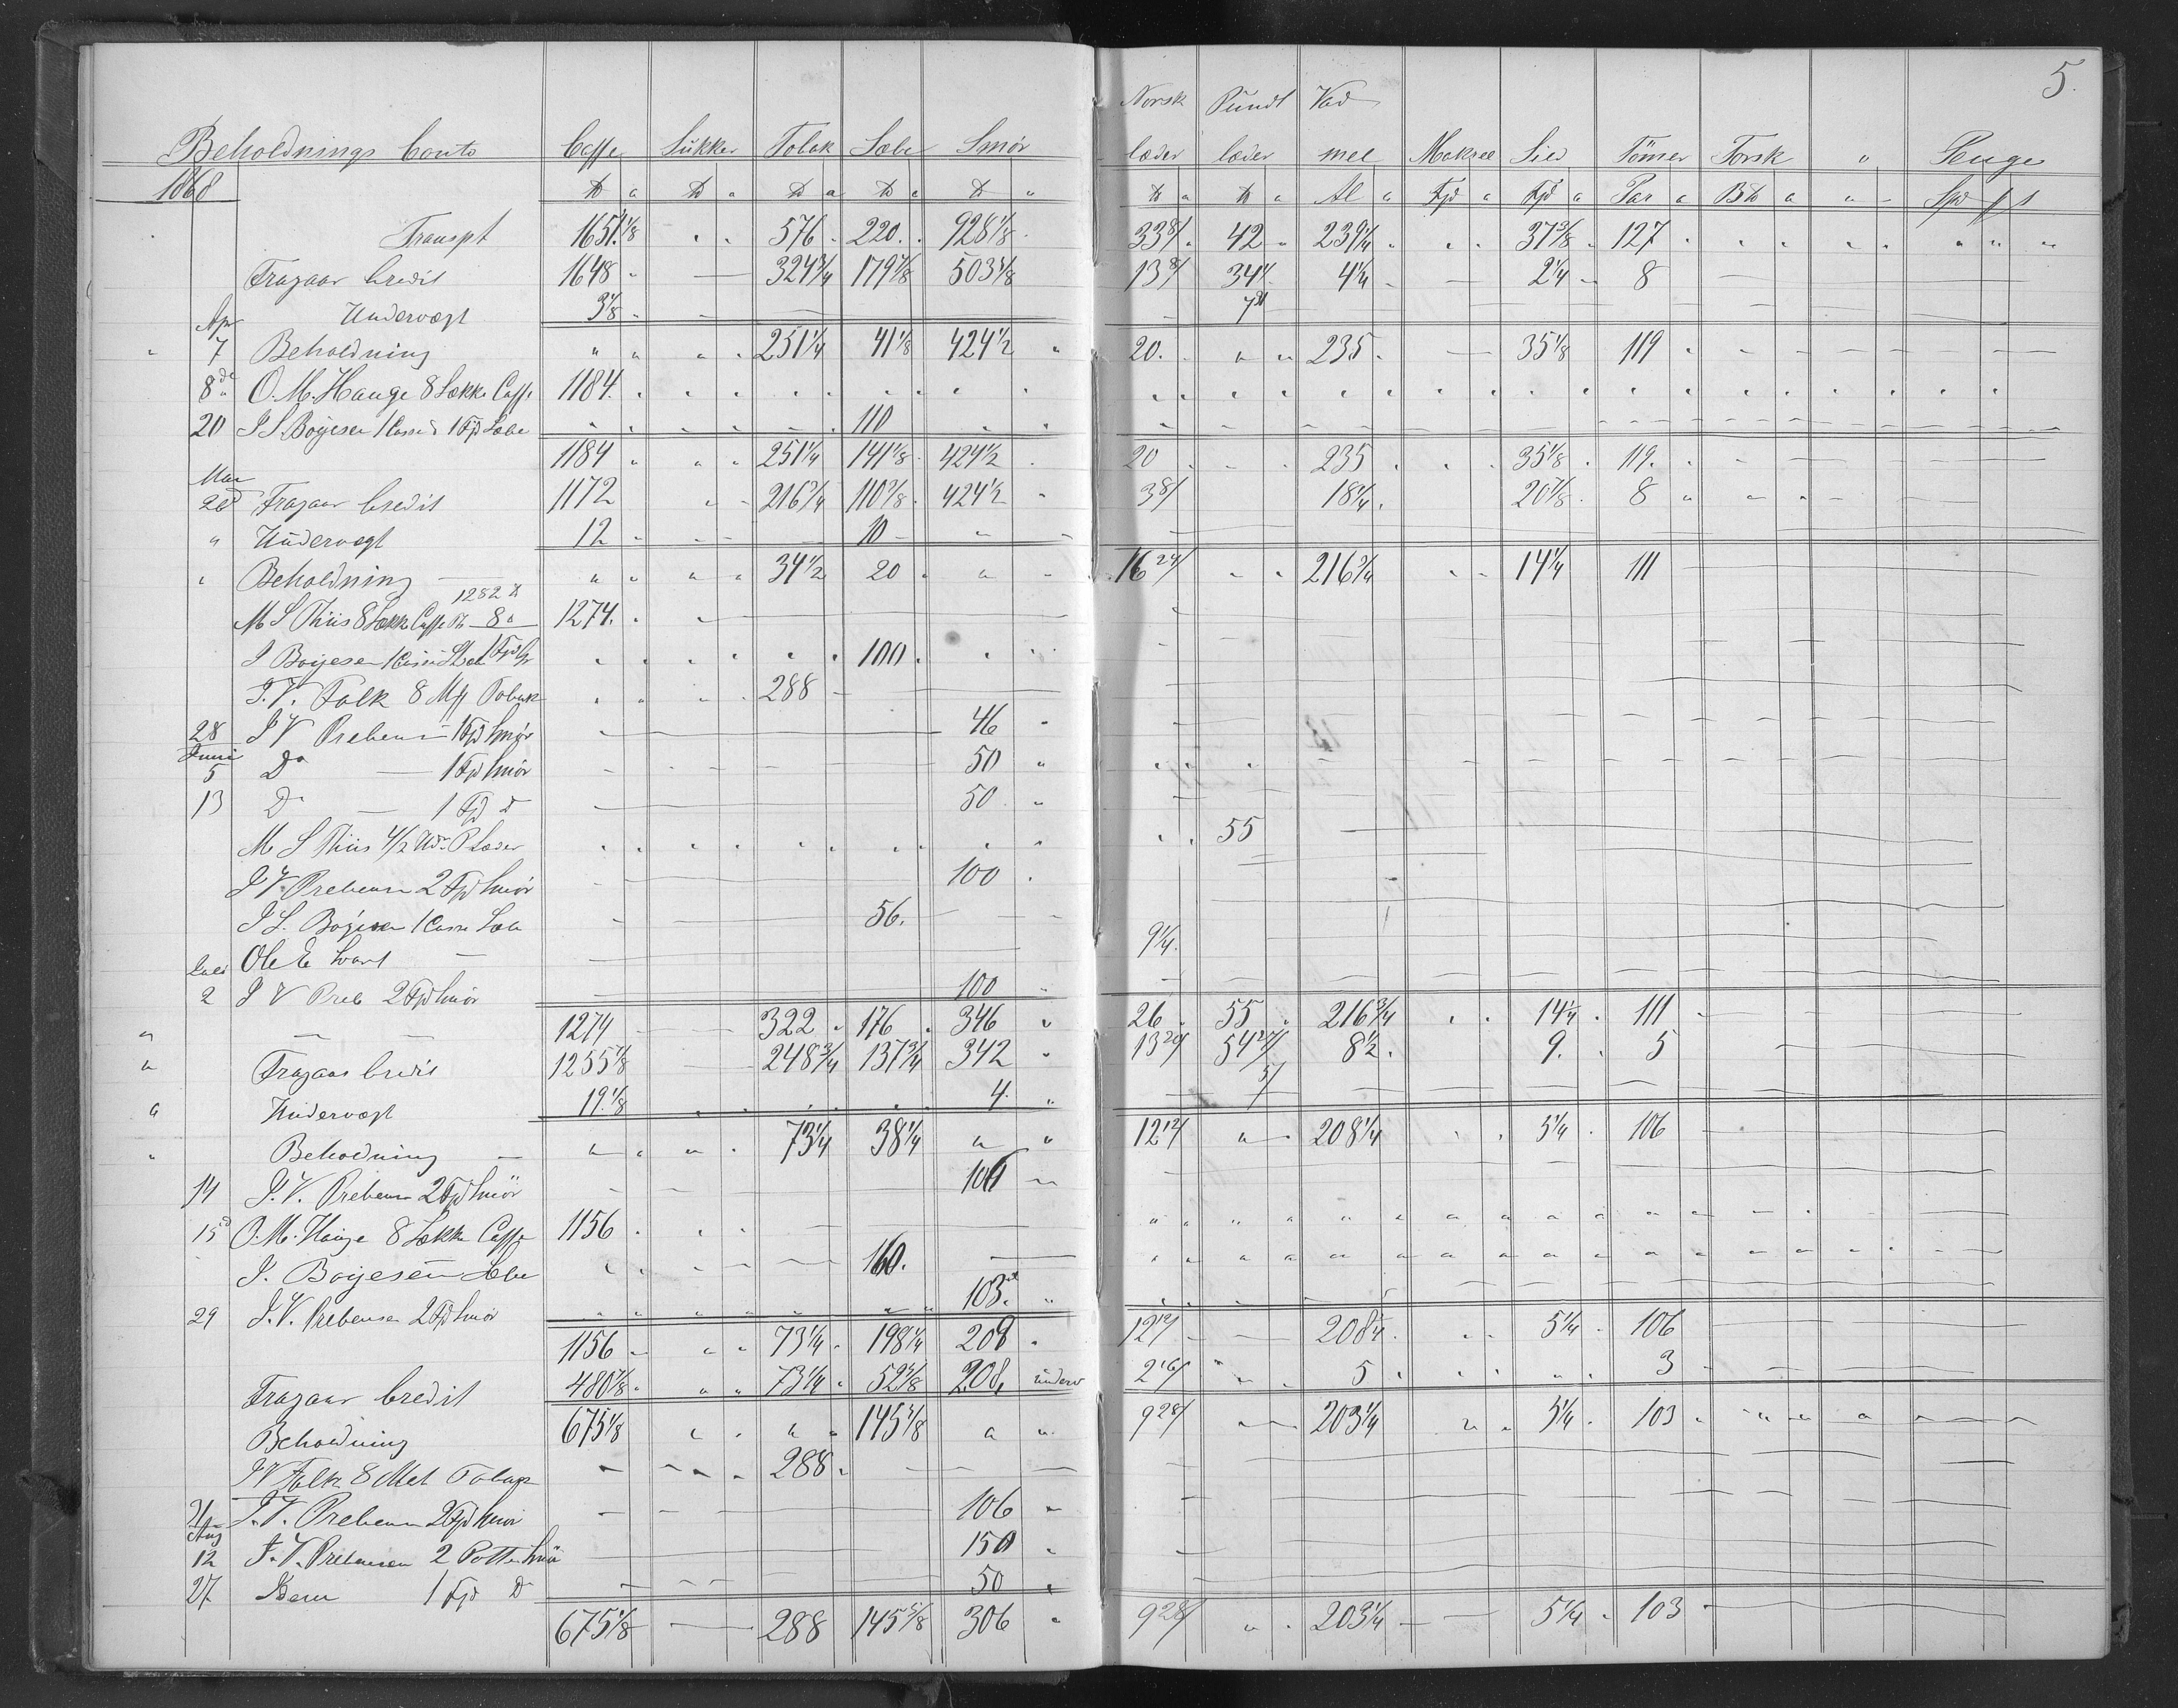 5.
Norsk Pundt Vad
Beholdnings Conto Caffe Sukker Tobak Sæbe Smør læder læder mel Makrel Sild Tömer Torsk " Penge
1868 ℔ " ℔ " ℔ " ℔ " ℔ " ℔ " ℔ " Al " Fjd " Fjd " Par " B℔ " " -
Transpt 1651 1/8 576 220 928 1/8 33 8/ 42 239 1/4 37 3/8 127
Fragaar Credit 1648 324 3/4 179 7/8 503 5/8 13 8/ 34 4 1/4 2 1/4 8
Undervægt 3 1/8
Apr
7 Beholdning 251 1/4 41 1/8 424 1/2 20 235 35 1/8 119
8de O. M. Hauge 8 Sække Caffe 1184
20 J S. Boyesen 1 Casse 1 Fjd Sæbe 110
1184 251 1/4 141 1/8 424 1/2 20 235 35 1/8 119
Mai
Fragaar Credit 1172 216 3/4 110 7/8 424 1/2 3 8/ 18 1/4 20 7/8 8
" Undervægt 12 10
" Beholdning 34 1/2 20 16 24/ 216 3/4 14 1/4 111
1282 ℔
M S Thiis 8 Sække Caffe 8 " 1274
J Boyesen 100
J. V. Falk 8 Tobak 288
28 J V Prebensen 1 Fjd Smör 46
Juni
5 Do 1 Fjd Smör 50
13 Do 1 Fjd Do 50
M S Thiis 4/2 P Læder 55
J V. Prebensen 2 Fjd Smör 100
J S. Boyesen 1 Casse Sæbe 56
Ole E 9 1/4
Juli
2 J V Preb 2 Fjd Smör 100
1274 322 176 346 26 55 216 3/4 14 1/4 111
Fragaar Credit 1255 7/8 248 3/4 137 3/4 342 13 20/ 54 27/ 8 1/2 9 5
Undervægt 19 1/8 4 5/
Beholdning 73 1/4 38 1/4 12 12/ 208 1/4 5 1/4 106
14 J. V. Prebensen 2 Fjd Smör
15d O. M. Hauge 8 Sække Caffe 1156
J. Boyesen Sæbe 160
29 J. V. Prebensen 2 Fjd Smör 103
1156 73 1/4 198 1/4 208 12 12/ 208 1/4 5 1/4 106
Fragaar Credit 480 7/8 73 1/4 52 5/8 208 underv 2 16/ 5 3
Beholdning 675 1/8 145 5/8 9 28/ 203 1/4 5 1/4 103
J V Falk 8 Tobak 288
J. V. Prebensen 2 Fjd Smör 106
Aug
12 J. V. Prebensen 2 Potter Smör 150
27 Idem 1 Fjd Do 50
675 1/8 288 145 5/8 306 9 28/ 203 1/4 5 1/4 103